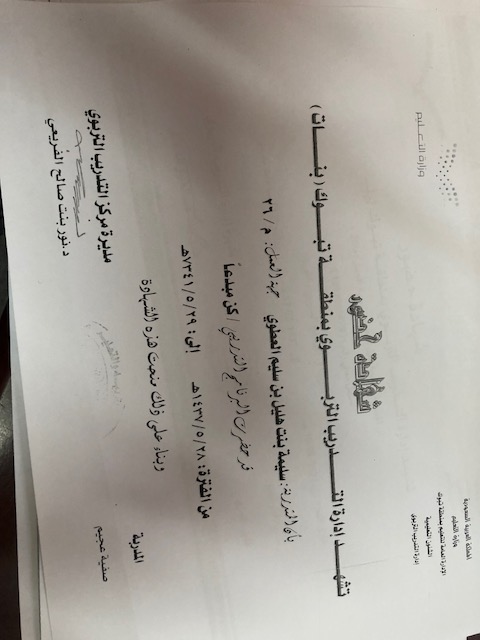 المملكة العربية السعودية
وزارة التعليم
الإدارة العامة للتعليم بمنطقة تبوك
الشئون التعليمية
إدارة التدريب التربوي
وزارة التعليم
شهادة حضور
تشهد إدارة التدريب التربوي بمنطقة تبوك ( بنات )
بأن المتدربة : سليمة بنت هليل بن سليم العطوي جهة العمل : م / ٢٦
قد حضرت البرنامج التدريبي / كن مبدعاً
من الفترة : ١٤٣٧/٥/٢٨هـ إلى : ١٤٣٧/٥/٢٩هـ
وبناء على ذلك منحت هذه الشهادة
المدربة
صفية عجيم
مديرة مركز التدريب التربوي
د.نور بنت صالح القريعي